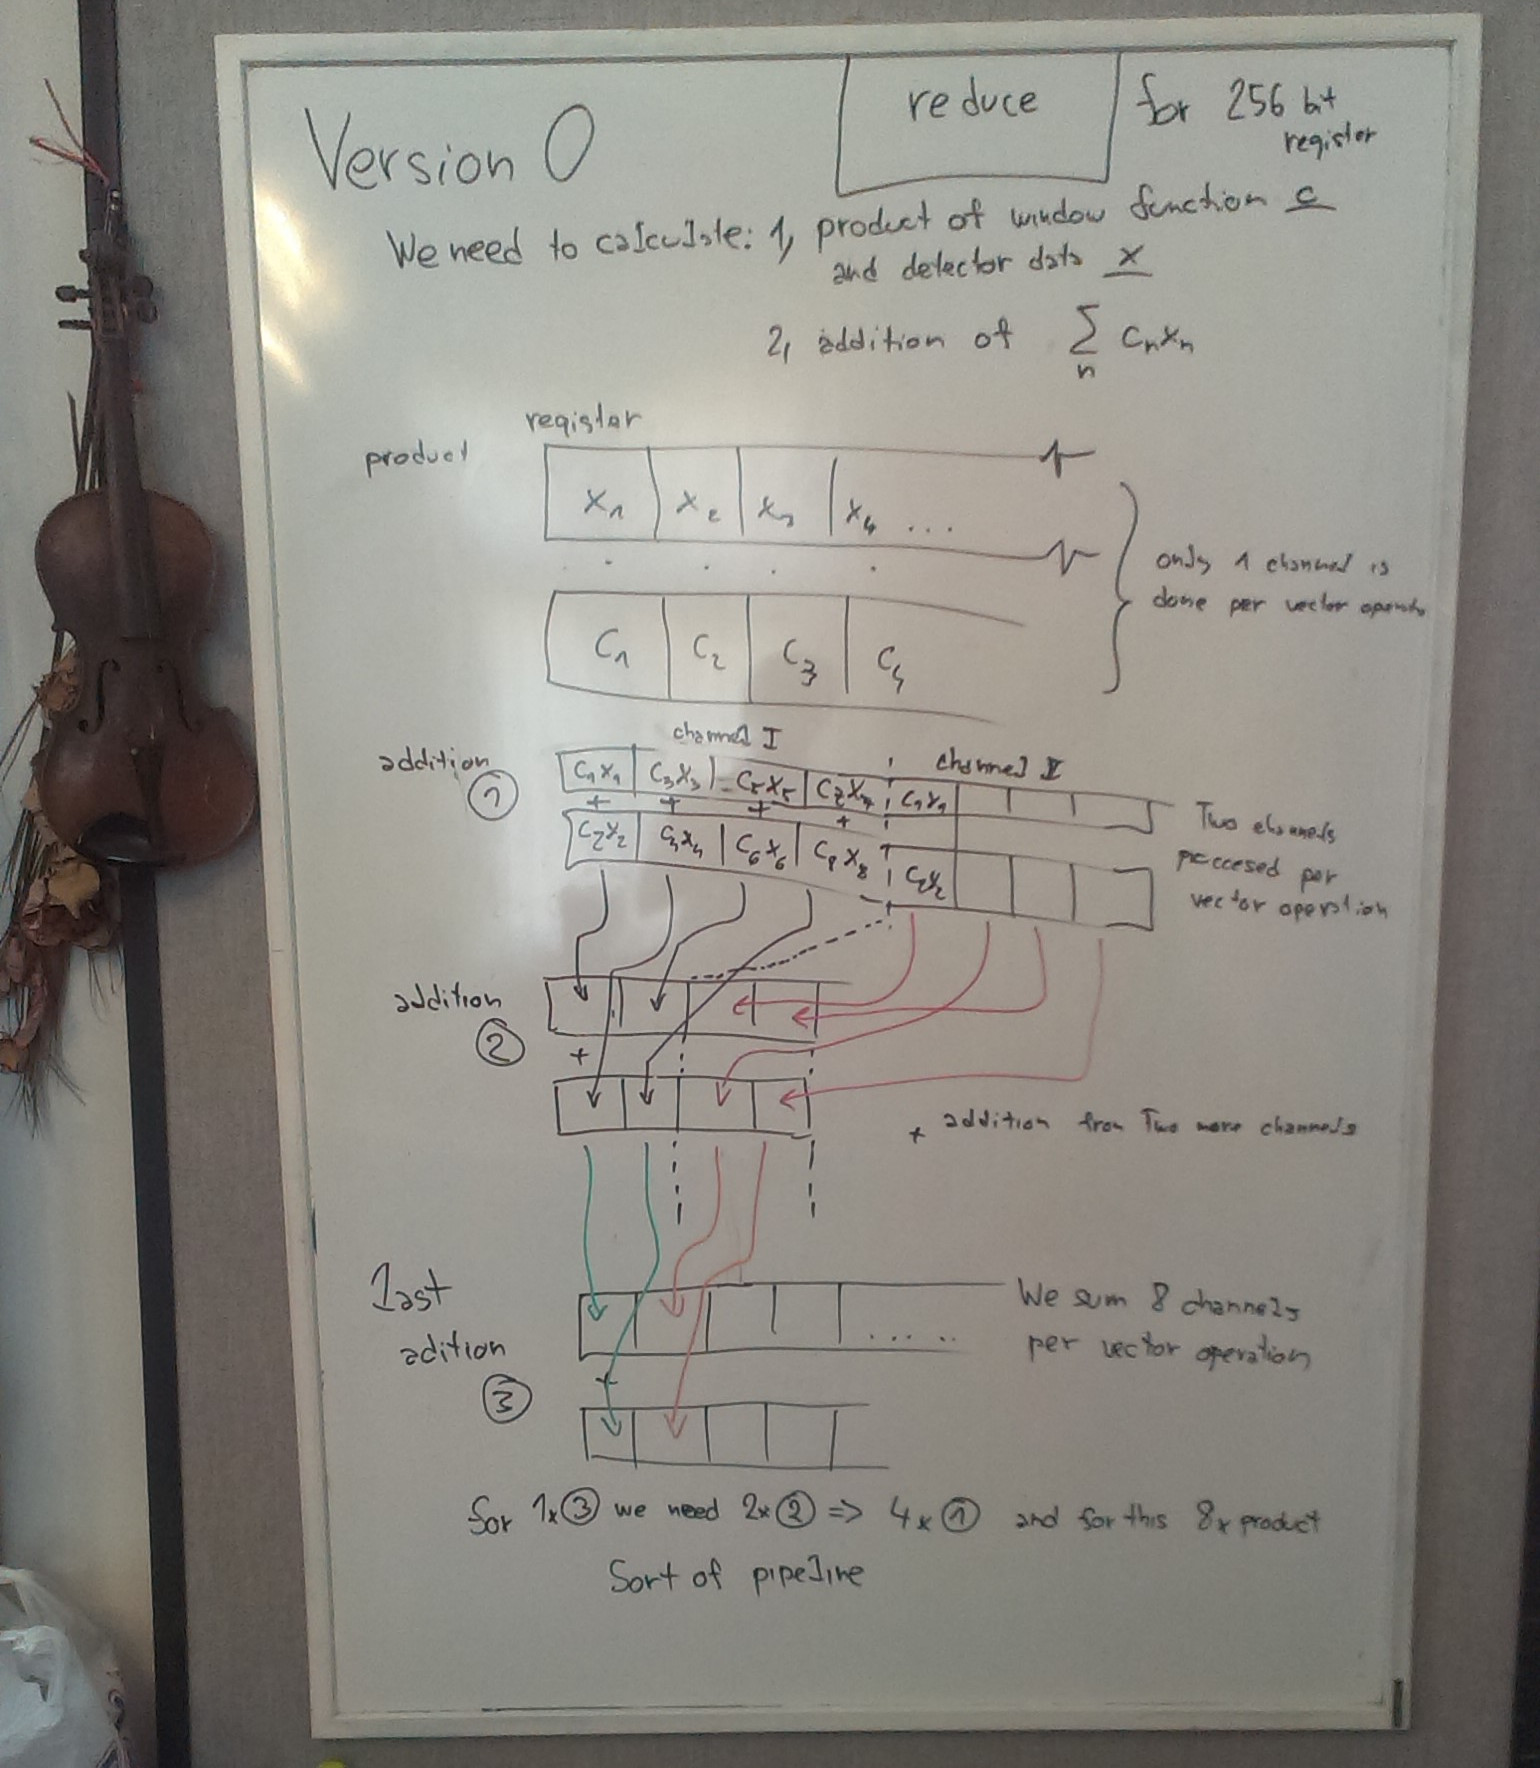 Version 0
reduce
for 256 bit
register
We need to calculate: 1, product of window function c
and detector data x
2, addition of ∑ cnxn
n
register
product
x1 x2 x3 x4 ...
. . . .
only 1 channel is
done per vector
C1 C2 C3 C4
channel I
addition
channel II
1
C1X1 C3X3 C5X5 C7X7 C1X1
+ + + +
C2X2 C4X4 C6X6 C8X8 C2X2
Two channels
proccesed per
vector operation
addition
2
+
+ addition from Two more channels
last
adition
3
+
.....
We sum 8 channels
per vector operation
for 1x③ we need 2x② => 4x① and for this 8x product
Sort of pipeline